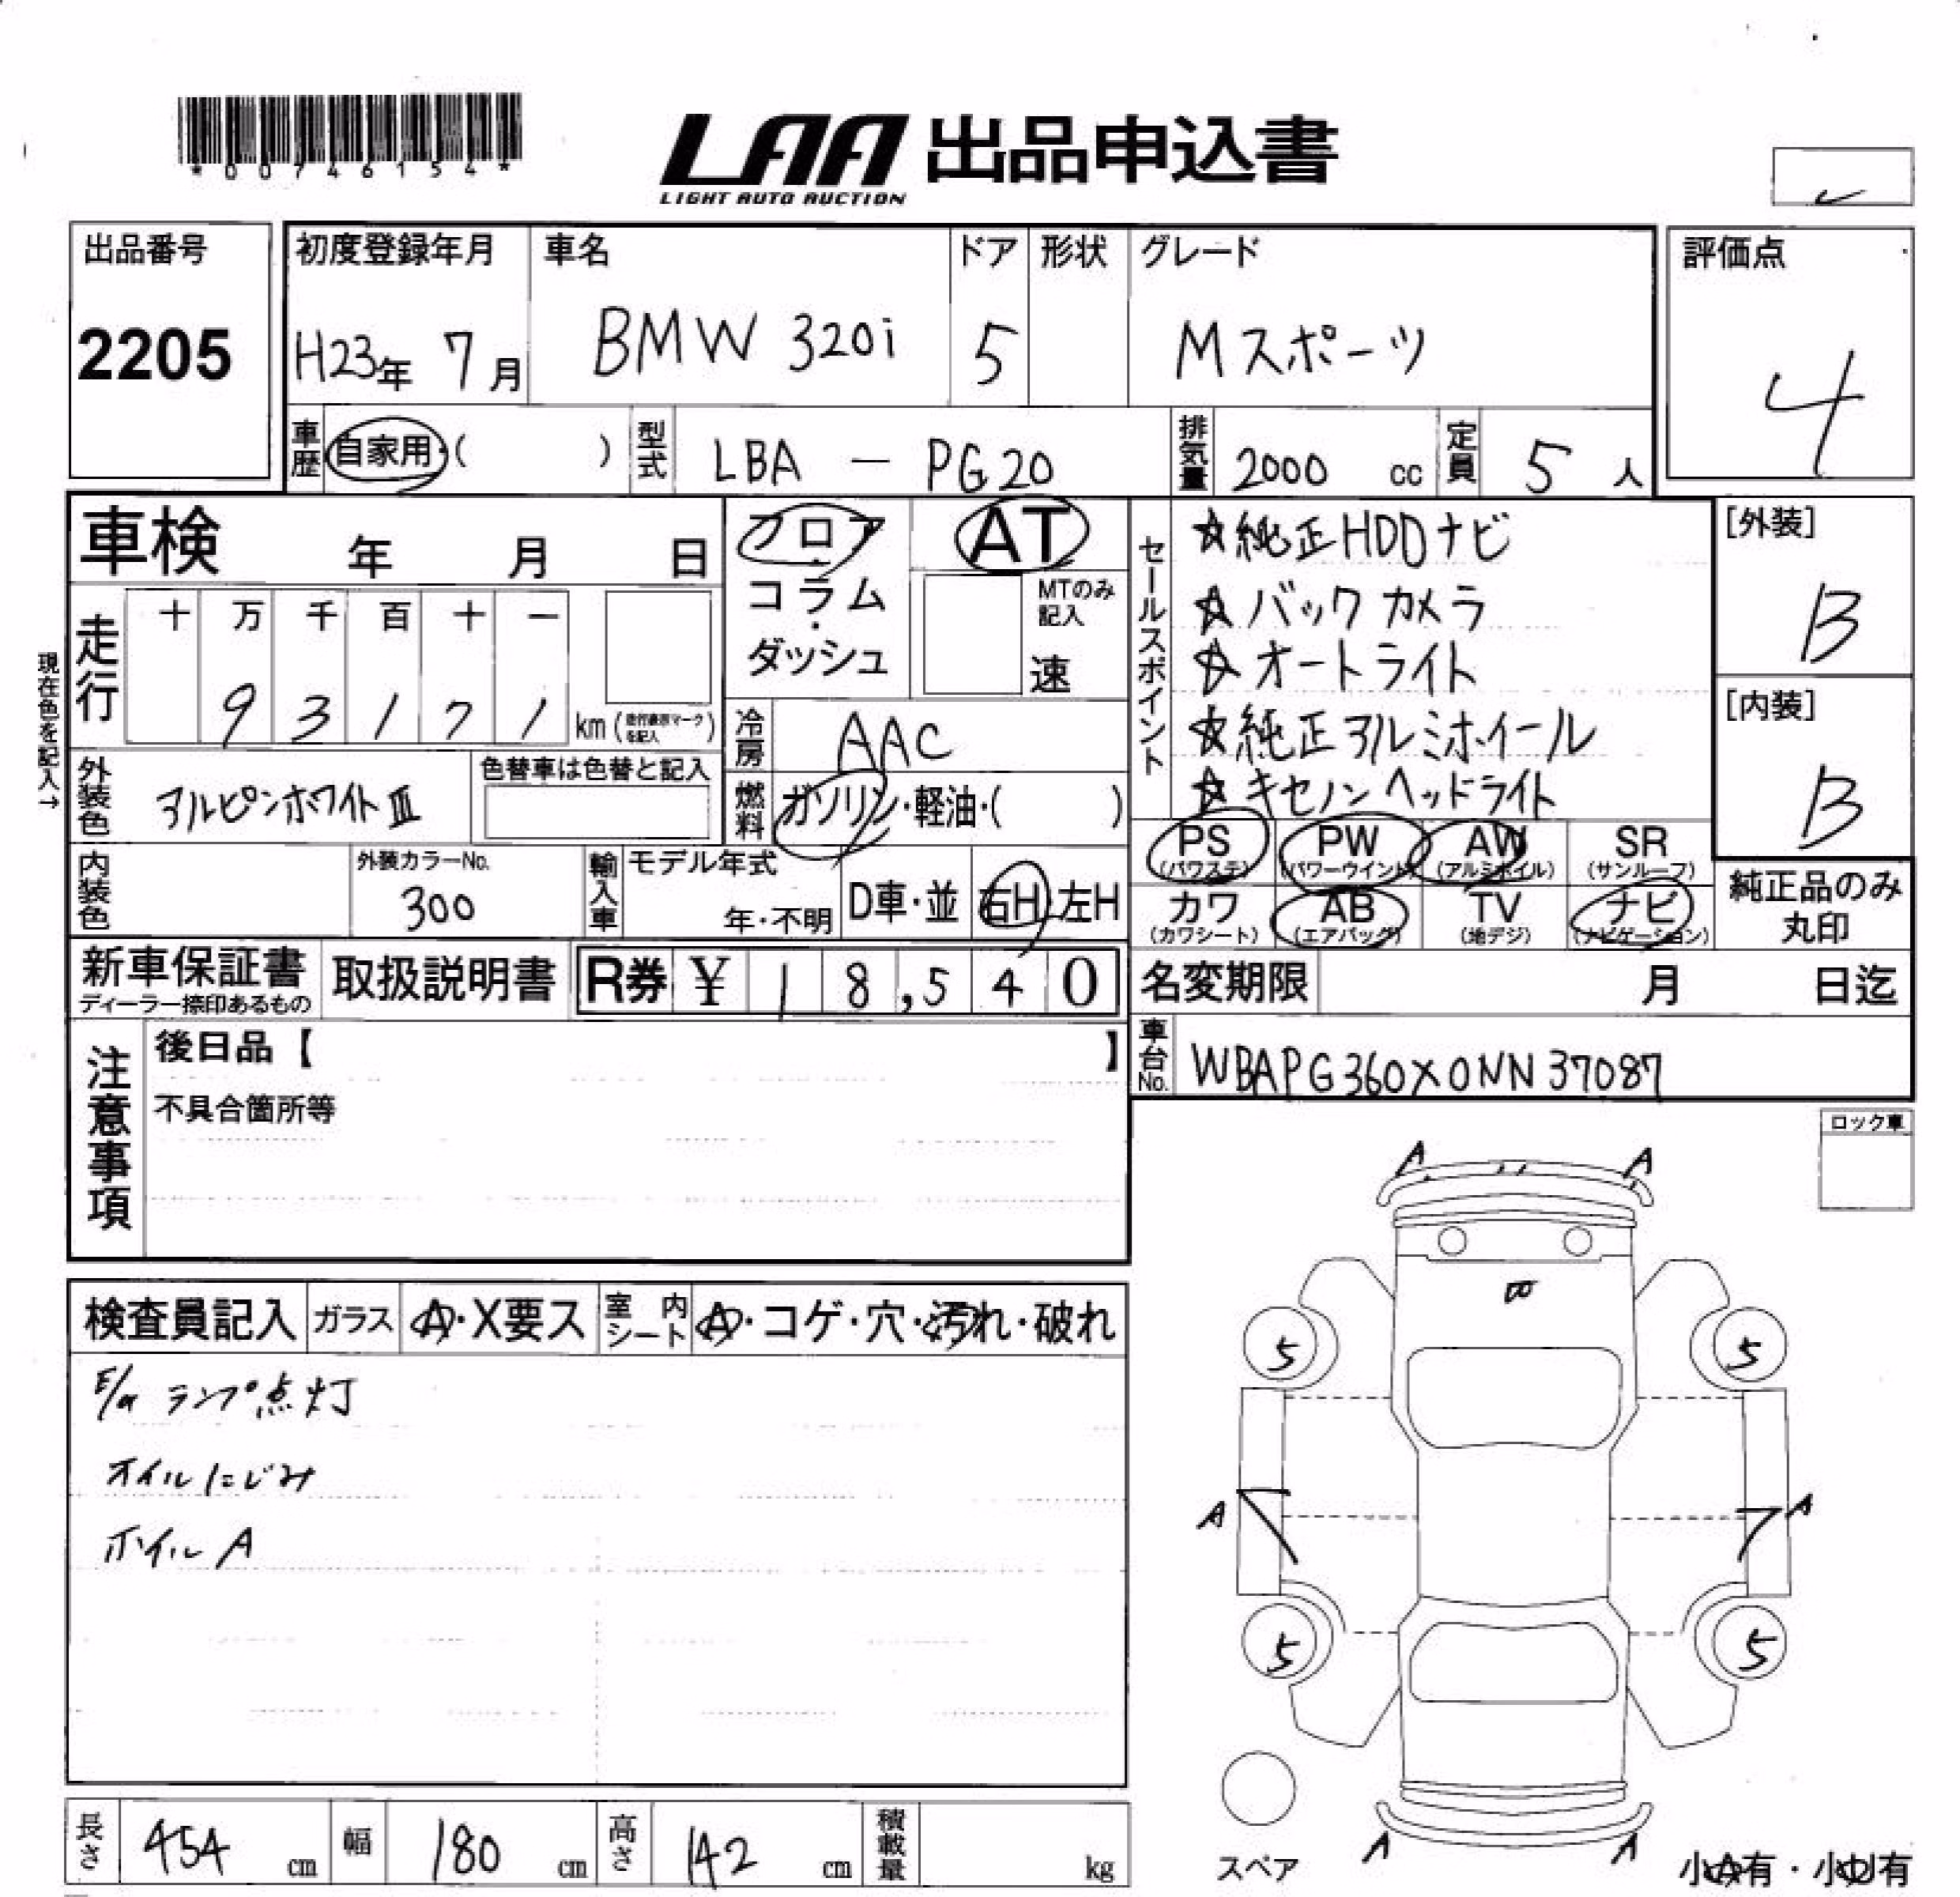 *00746154*
LAA 出品申込書
LIGHT AUTO AUCTION
出品番号
2205
初度登録年月
H23年 7月
車名
BMW 320i
ドア
5
形状
グレード
Mスポーツ
評価点
4
車歴
自家用・( )
型式
LBA - PG20
排気量
2000 cc
定員
5 人
車検 年 月 日
走行
十 万 千 百 十 一
9 3 1 7 1 km (走行表示マークを記入)
現在色を記入→
外装色
アルピンホワイトⅢ
色替車は色替と記入
内装色
外装カラーNo.
300
輸入車
モデル年式
年・不明
D車・並
右H・左H
フロア
・
コラム
・
ダッシュ
AT
MTのみ記入
速
冷房
AAC
燃料
ガソリン・軽油・( )
セールスポイント
☆純正HDDナビ
☆バックカメラ
☆オートライト
☆純正アルミホイール
☆キセノンヘッドライト
[外装]
B
[内装]
B
PS (パワステ)
PW (パワーウインド)
AW (アルミホイル)
SR (サンルーフ)
カワ (カワシート)
AB (エアバッグ)
TV (地デジ)
ナビ (ナビゲーション)
純正品のみ丸印
新車保証書
ディーラー捺印あるもの
取扱説明書
R券 ¥ 18,540
名変期限 月 日迄
車台No.
WBAPG360X0NN37087
注意事項
後日品【 】
不具合箇所等
ロック車
検査員記入
ガラス
A・X要ス
室内シート
A・コゲ・穴・汚れ・破れ
E/g ランプ点灯
オイルにじみ
ホイルA
A
A
5
5
A
A
5
5
A
A
スペア
小A有・小U有
長さ
454 cm
幅
180 cm
高さ
142 cm
積載量
kg